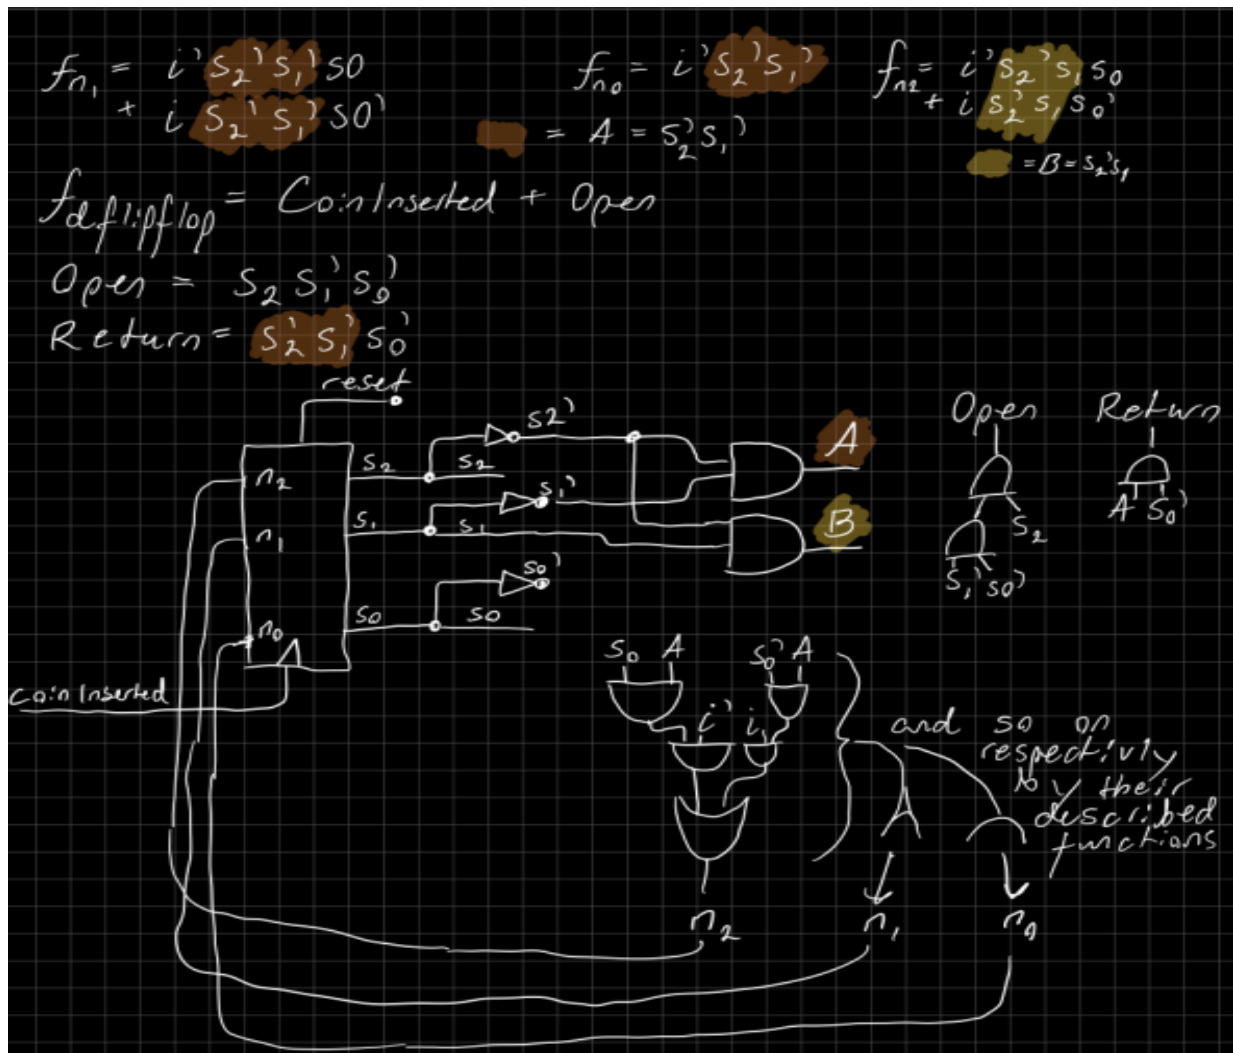 fn₁ = i' s₂' s₁' s0
+ i s₂' s₁' s0'
fn₀ = i' s₂' s₁'
= A = s₂' s₁'
fn₂ = i' s₂' s₁ s₀
+ i s₂' s₁ s₀'
= B = s₂' s₁
f dflipflop = CoinInserted + Open
Open = s₂ s₁' s₀'
Return = s₂' s₁' s₀'
reset
n₂
n₁
n₀
s₂
s₁
s0
s2'
s₂
s₁'
s₁
s0'
s0
A
B
Open
s₂
s₁' s0'
Return
A s₀'
CoinInserted
s₀ A
s₀' A
i' i
and so on
respectivly
by their
described
functions
n₂
n₁
n₀